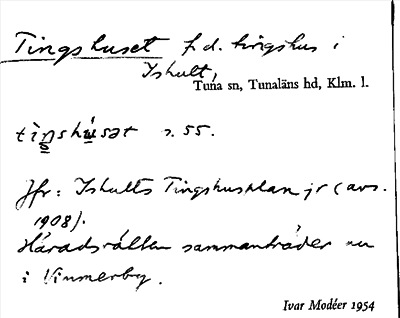 Tingshuset f.d. tingshus i
Ishult,
Tuna sn, Tunaläns hd, Klm. l.
tìŋshú̱sat s. 55.
Jfr: Ishults Tingshusplan jr (avs.
1908).
Häradsrätten sammanträder nu
i Vimmerby.
Ivar Modéer 1954